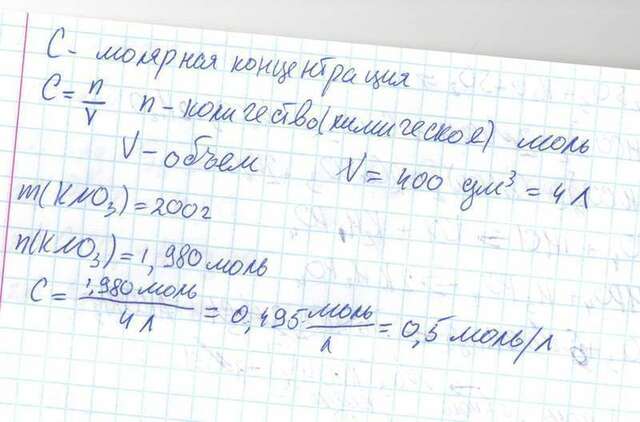 C - молярная концентрация
C = n/V n - количество (химическое) моль
V - объем V = 400 дм³ = 4 л
m(KNO₃) = 200 г
n(KNO₃) = 1,980 моль
C = 1,980 моль / 4 л = 0,495 моль/л = 0,5 моль/л